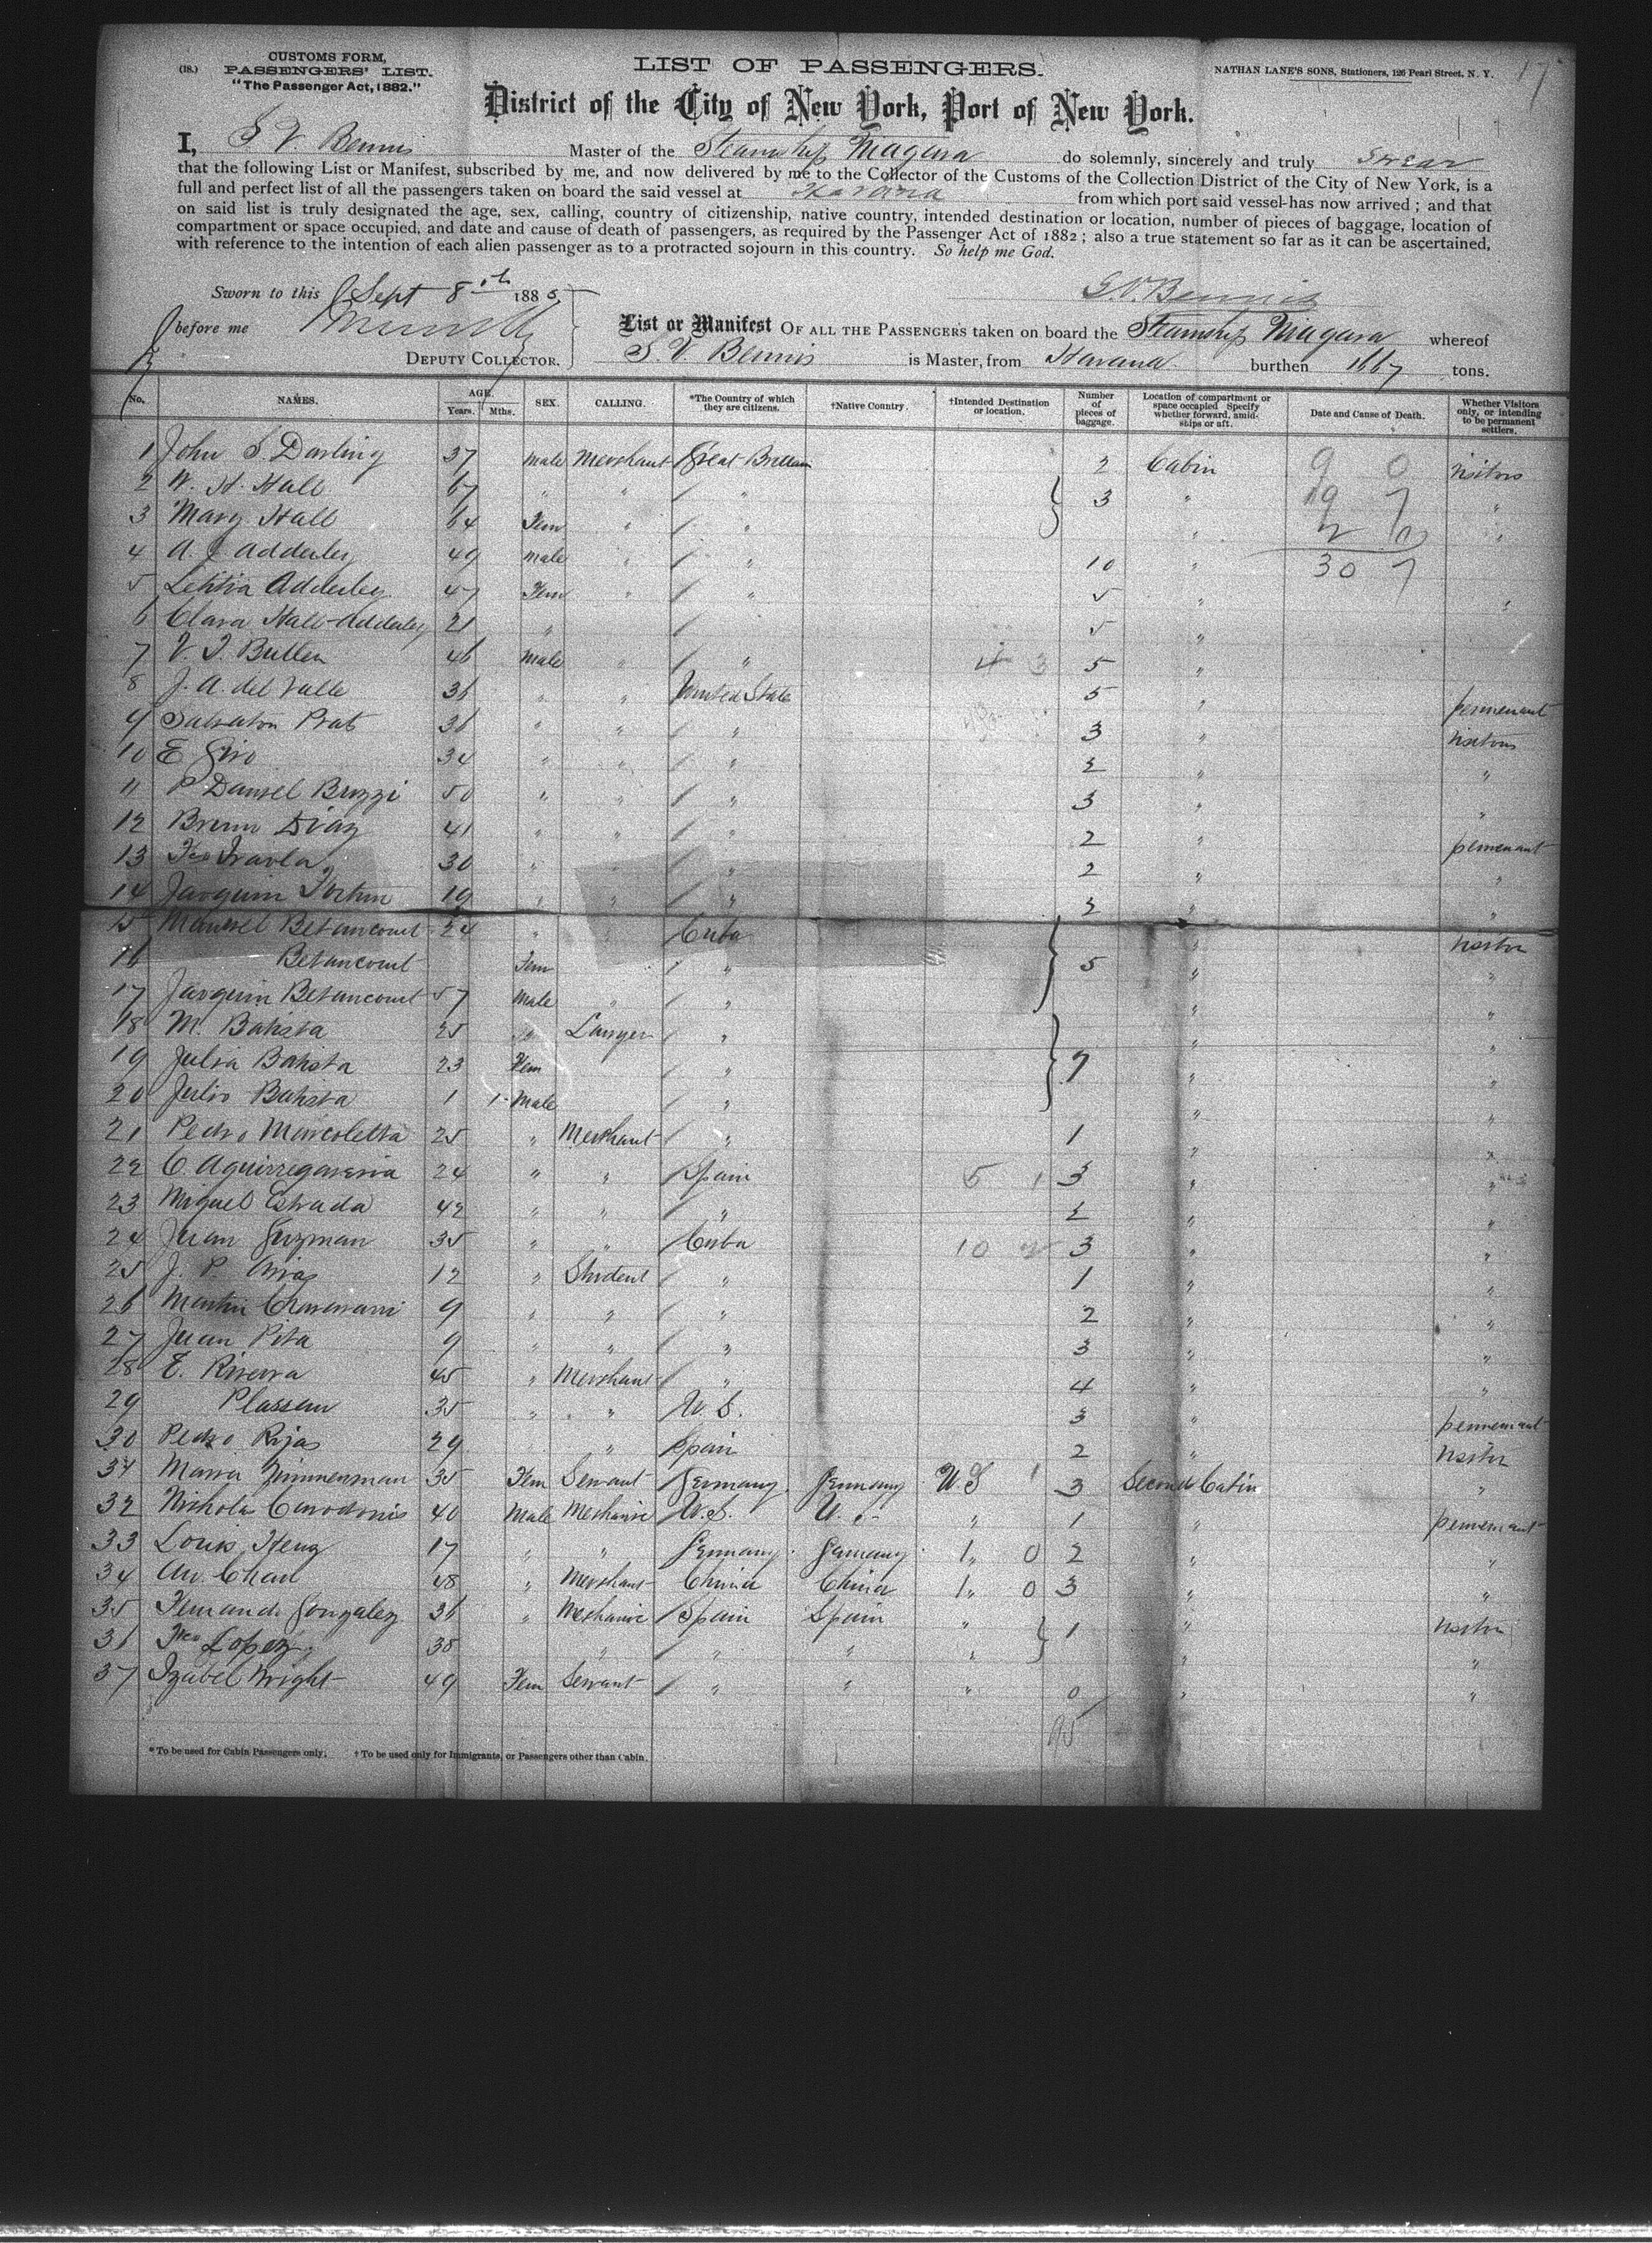 (18.)
CUSTOMS FORM,
PASSENGERS' LIST.
"The Passenger Act, 1882."
LIST OF PASSENGERS.
NATHAN LANE'S SONS, Stationers, 126 Pearl Street, N. Y.
17
District of the City of New York, Port of New York.
I, S V. Bennis Master of the Steamship Niagara do solemnly, sincerely and truly swear
that the following List or Manifest, subscribed by me, and now delivered by me to the Collector of the Customs of the Collection District of the City of New York, is a
full and perfect list of all the passengers taken on board the said vessel at Havana from which port said vessel has now arrived; and that
on said list is truly designated the age, sex, calling, country of citizenship, native country, intended destination or location, number of pieces of baggage, location of
compartment or space occupied, and date and cause of death of passengers, as required by the Passenger Act of 1882; also a true statement so far as it can be ascertained,
with reference to the intention of each alien passenger as to a protracted sojourn in this country. So help me God.
S.V. Bennis
Sworn to this Sept 8th 1885
before me
DEPUTY COLLECTOR.
List or Manifest OF ALL THE PASSENGERS taken on board the Steamship Niagara whereof
S. V. Bennis is Master, from Havana burthen 1667 tons.
No. NAMES. AGE. Years. Mths. SEX. CALLING. *The Country of which they are citizens. †Native Country. †Intended Destination or location. Number of pieces of baggage. Location of compartment or space occupied Specify whether forward, amidships or aft. Date and Cause of Death. Whether Visitors only, or intending to be permanent settlers.
1 John S. Darling 37 male Merchant Great Brittain 2 Cabin 9 0 visitors
2 W. H. Hall 67 " " " 3 " 19 7 "
3 Mary Hall 64 Fem " " " 2 0 "
4 A J Adderley 49 male " " 10 " 30 7
5 Letitia Adderley 47 Fem " " 5 " "
6 Clara Hall-Adderley 21 " 5 "
7 V. J. Bullen 46 male " " 4 3 5 "
8 J. A. del Valle 36 " " United State 5 " permenant
9 Salvator Prats 36 " " " 3 " visitors
10 E Giro 34 " " " 2 " "
11 P Daniel Bruzzi 50 " " " 3 " "
12 Bruno Diaz 41 " " " 2 " permenant
13 Fco 30 " " 2 " "
14 Jaoquim 19 " " " 2 " "
15 Manuel Betancourt 24 " " Cuba " visitor
16 Betancourt Fem " 5 " "
17 Jaoquim Betancourt 57 Male " " " "
18 M. Batista 25 " Lawyer " " "
19 Julia Batista 23 Fem " 7 " "
20 Julio Batista 1 1 Male " " "
21 Pedro Marcoletta 25 " Merchant " 1 " "
22 C. Aguirregaviria 24 " " Spain 5 1 3 " "
23 Miguel Estrada 42 " " " 2 " "
24 Juan Guzman 35 " " Cuba 10 3 " "
25 J. P. Arias 12 " Student " 1 " "
26 Martin 9 " " " 2 " "
27 Juan Pita 9 " " " 3 " "
28 E. Rivera 45 " Merchant " 4 " "
29 Plassan 35 " " U. S. 3 " permenant
30 Pedro Rijas 29 " Spain 2 " visitor
31 Maria Zimmerman 35 Fem Servant Germany Germany U.S 1 3 Second Cabin "
32 Nichola 40 Male Mechanic U.S. U. S " 1 " permenant
33 Louis Henz 17 " " Germany Germany 1 " 0 2 " "
34 Aw. Chan 48 " Merchant China China 1 " 0 3 " "
35 Fernando Gonzalez 36 " Mechanic Spain Spain " 1 " visitor
36 Fco Lopez 38 " " " " " "
37 Izabel Wright 49 Fem Servant " " " 0 " "
95
* To be used for Cabin Passengers only. † To be used only for Immigrants, or Passengers other than Cabin.